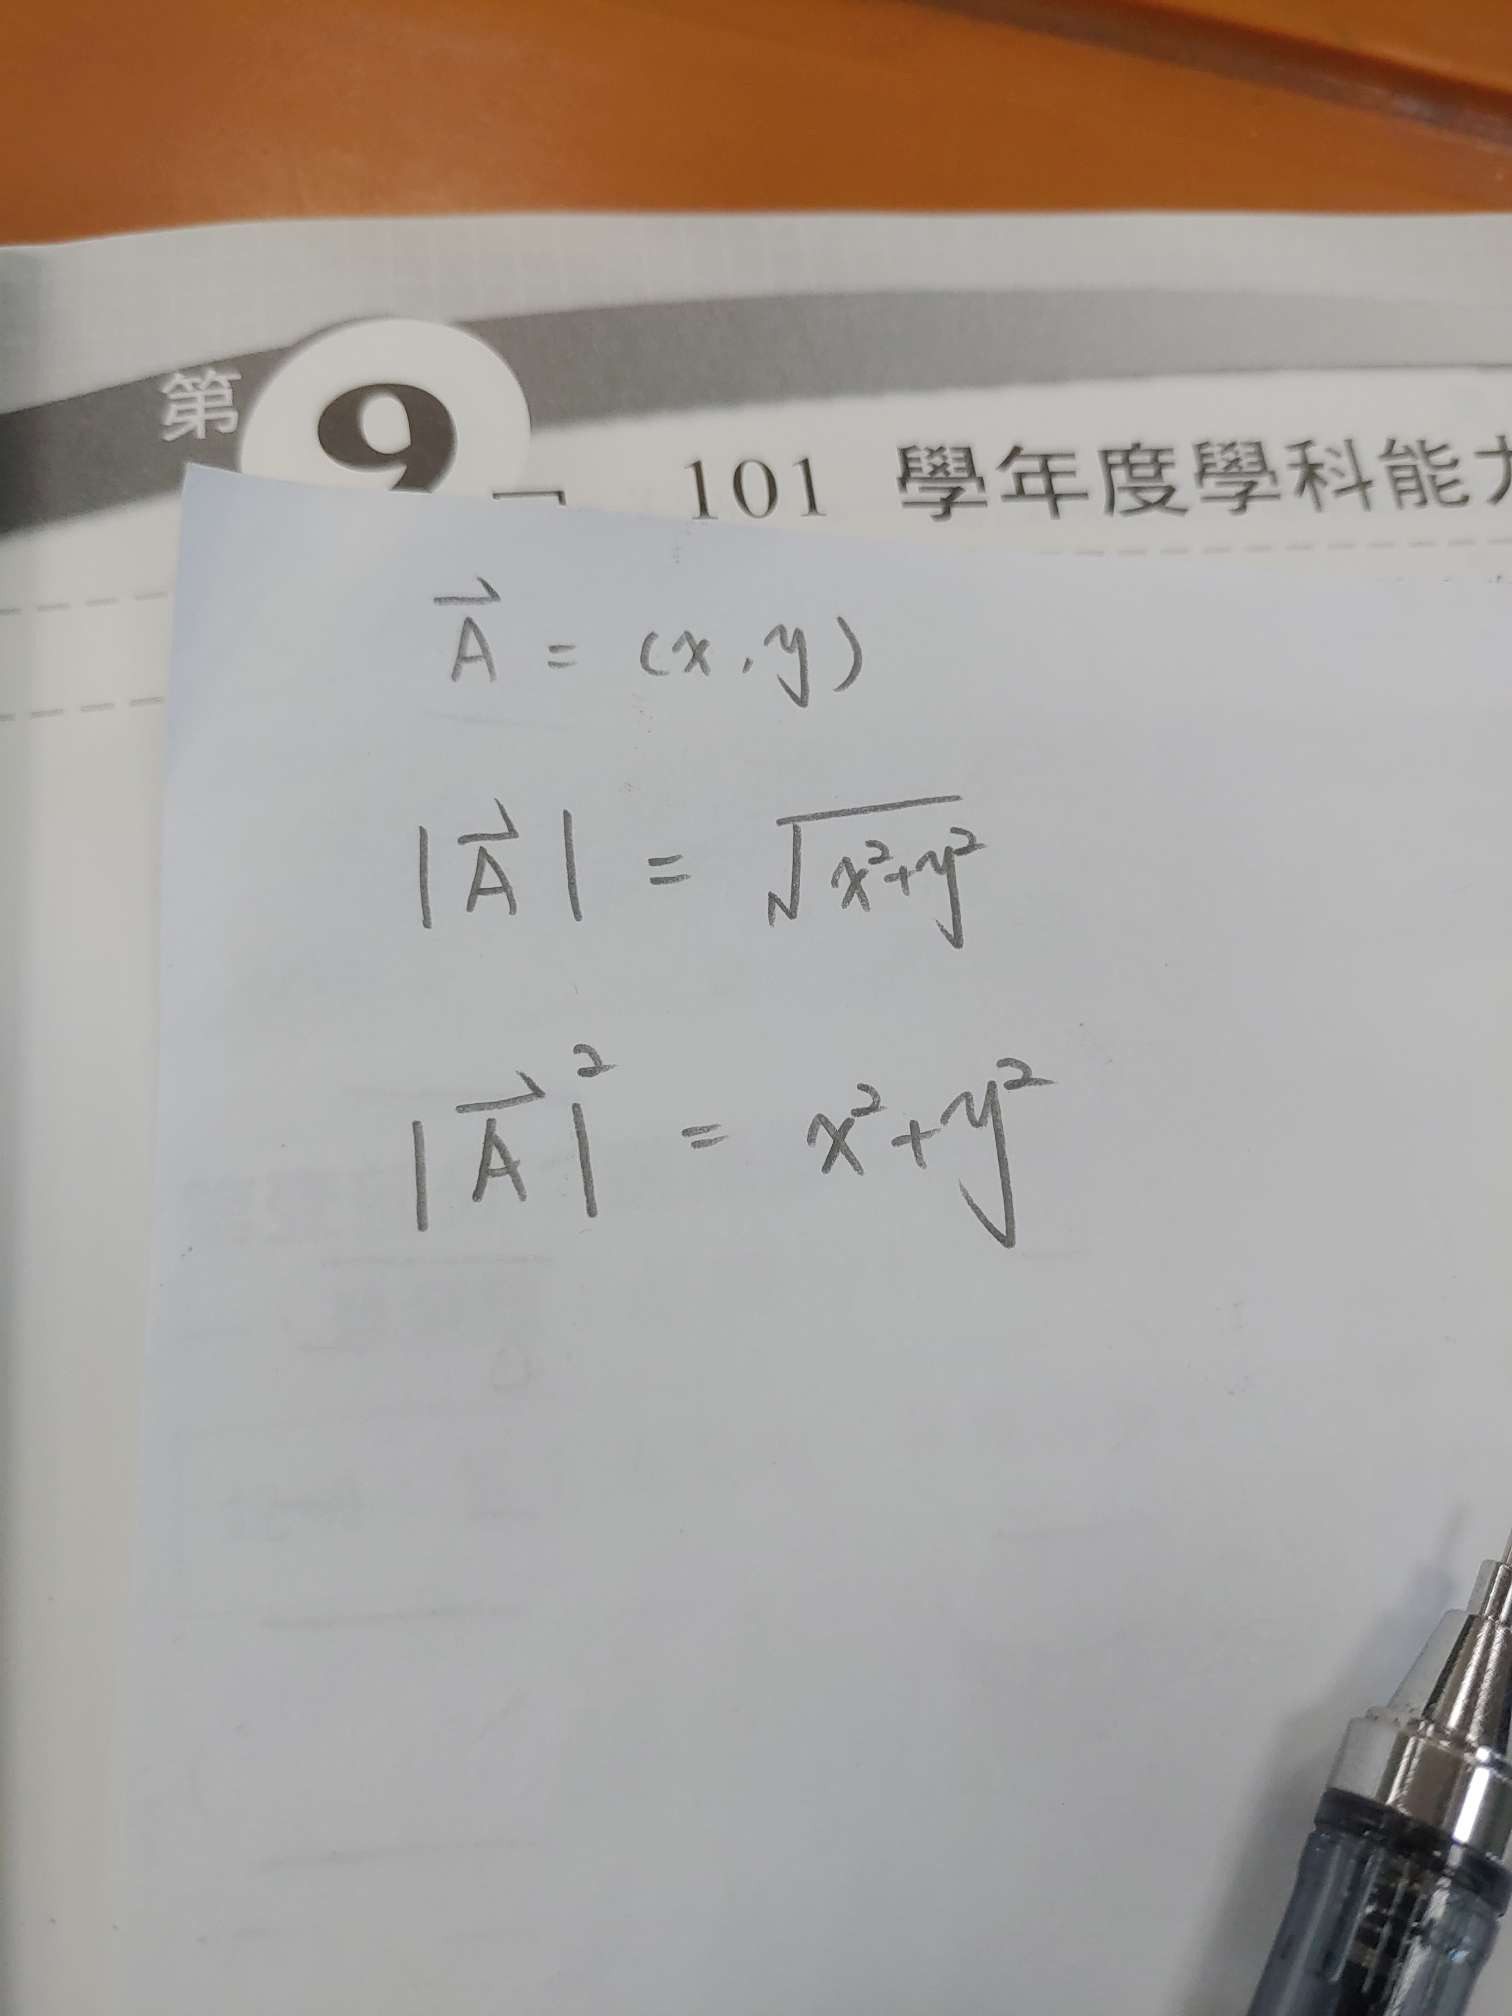 第9
101 學年度學科能
A⃗ = (x, y)
|A⃗| = √x²+y²
|A⃗|² = x²+y²